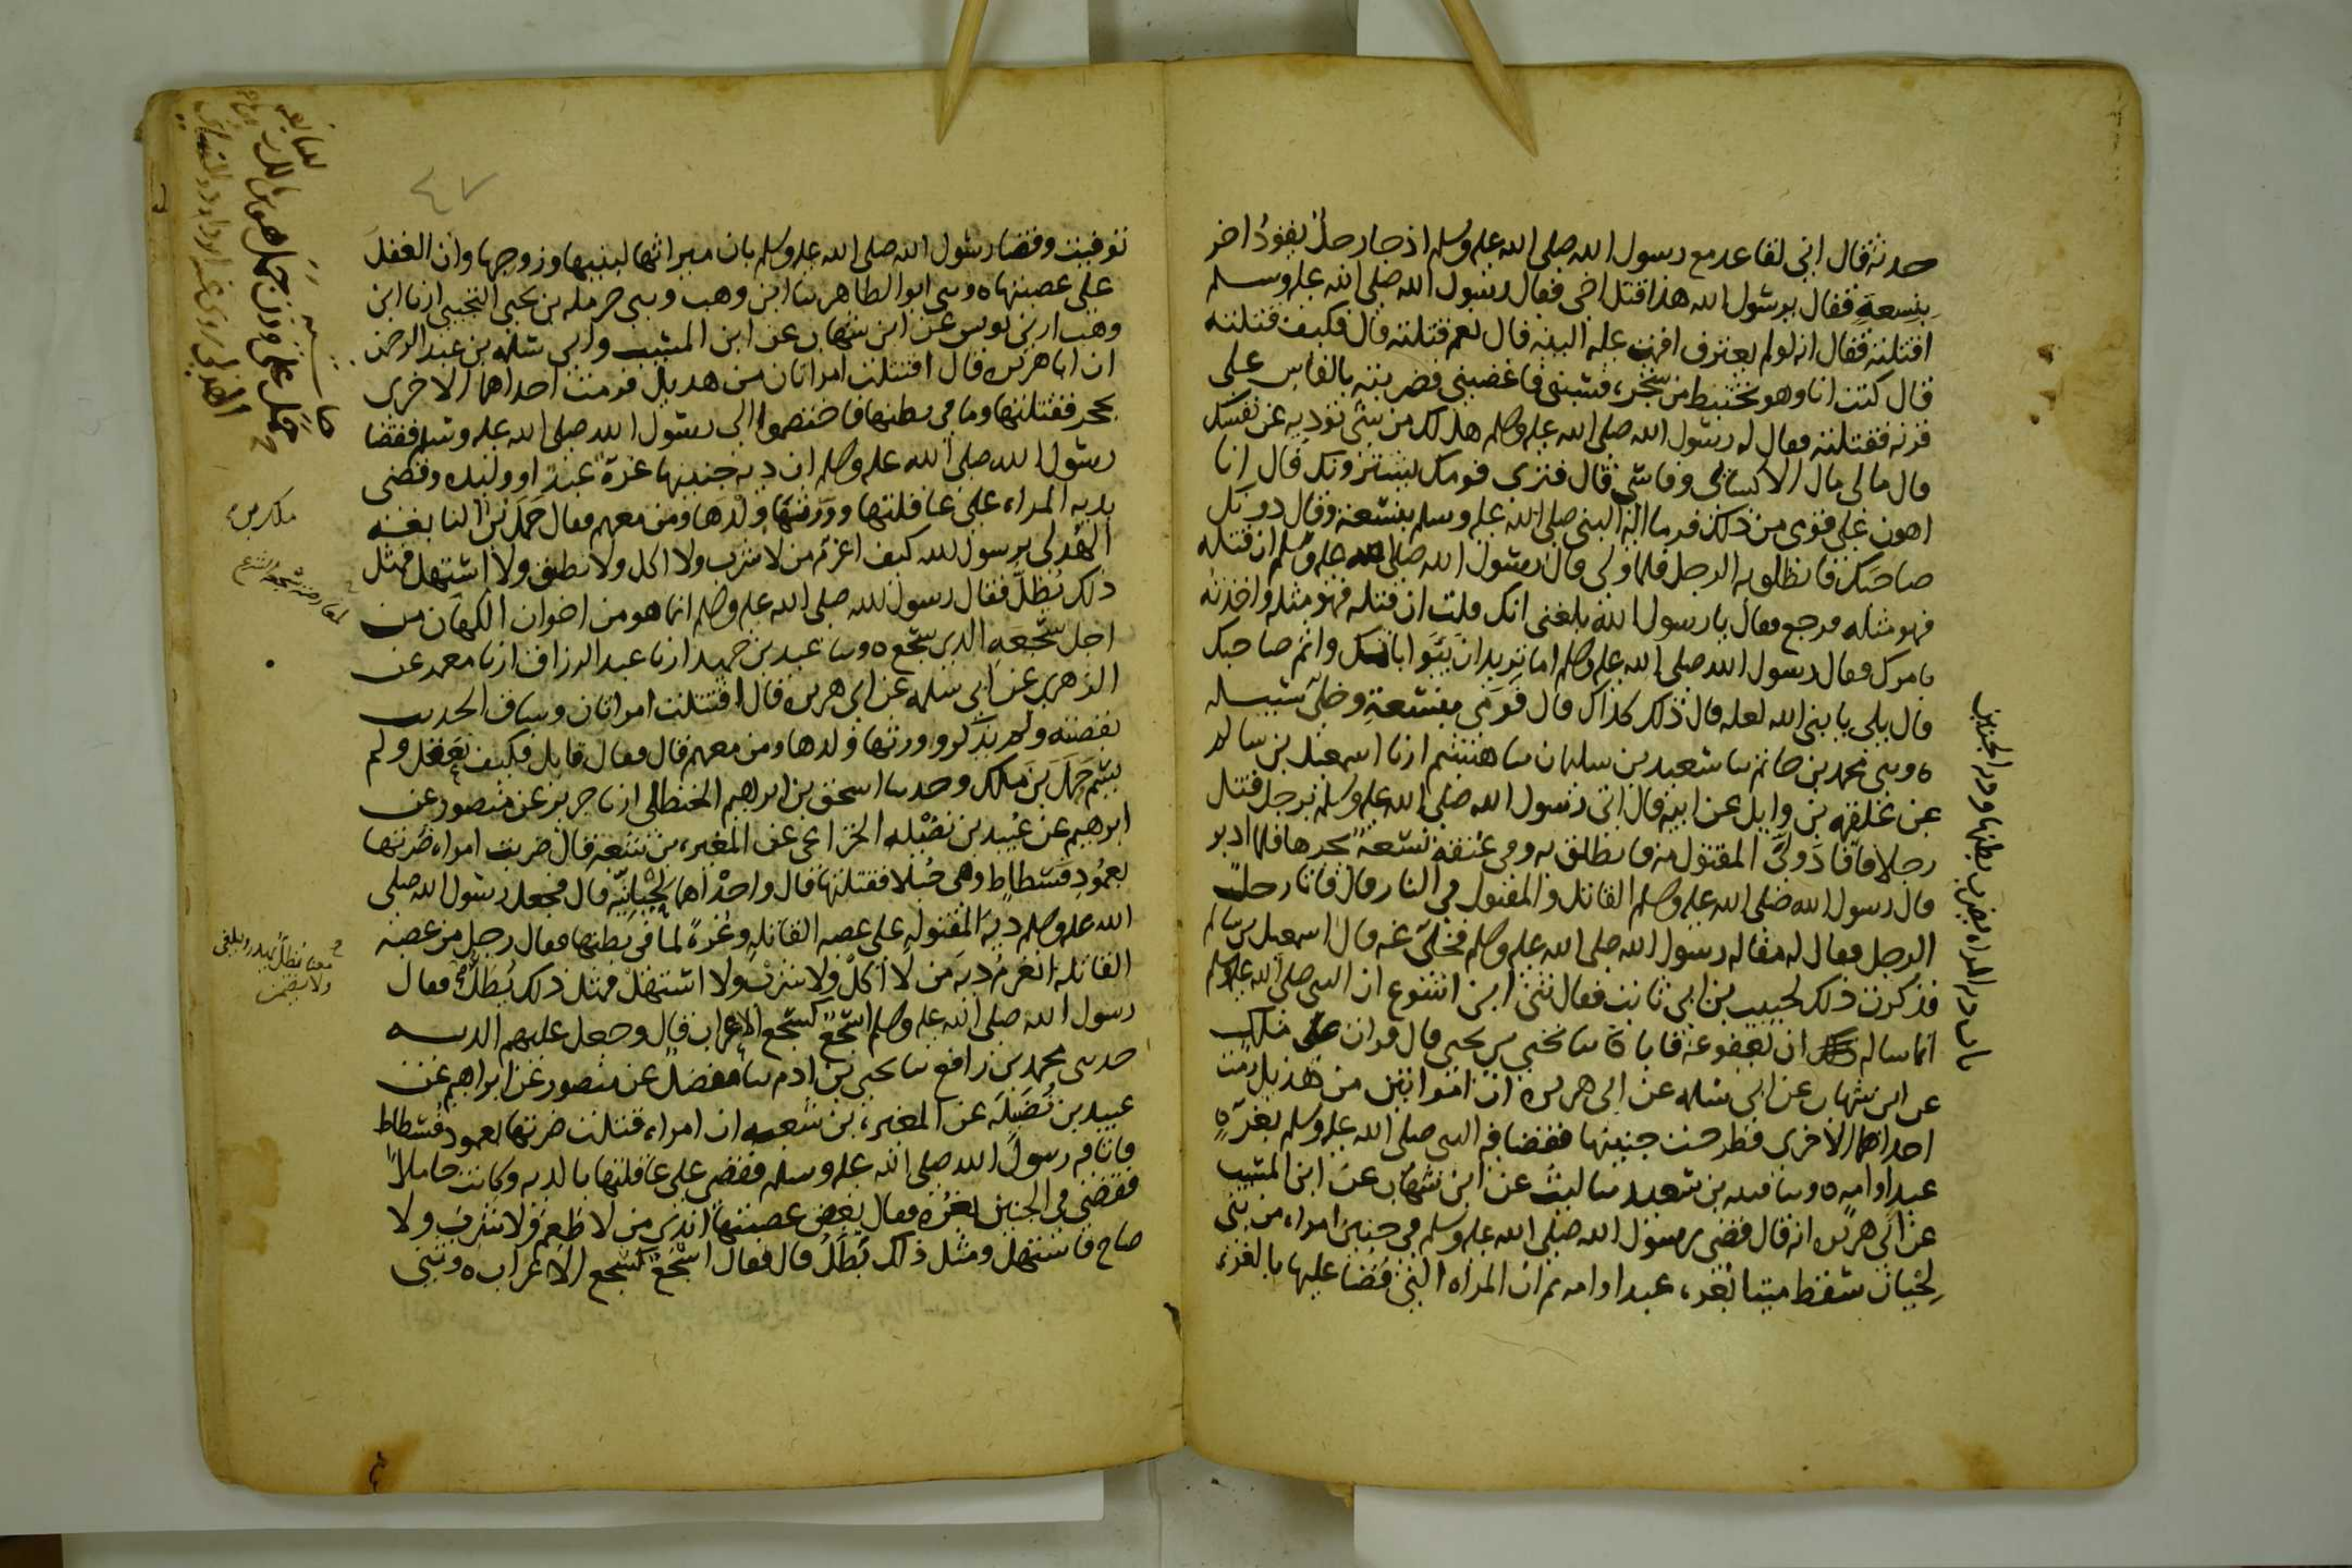 حدثه قال اني لقاعد مع رسول الله صلى الله عليه وسلم اذ جا رجل يقود اخر
بنسعة فقال يرسول الله هذا قتل اخي فقال رسول الله صلى الله عليه وسلم
اقتلته فقال انه لو لم يعترف اقمت عليه البينه قال نعم قتلته قال فكيف قتلته
قال كنت انا وهو نختبط من شجره فسبني فاغضبني فضربته بالفاس على
قرنه فقتلته فقال له رسول الله صلى الله عليه وسلم هل لك من شي توديه عن نفسك
قال مالي مال الا كسائي وفاسي قال فترى قومك يشترونك قال انا
اهون على قومي من ذلك فرما اليه النبي صلى الله عليه وسلم بنسعته وقال دونك
صاحبك فانطلق به الرجل فلما ولى قال رسول الله صلى الله عليه وسلم ان قتله
فهو مثله فرجع فقال يا رسول الله بلغني انك قلت ان قتله فهو مثله واخذته
بامرك فقال رسول الله صلى الله عليه وسلم اما تريد ان يبوا باثمك واثم صاحبك
قال بلى يا نبي الله لعله قال ذلك كذاك قال فرمى بنسعته وخلى سبيله
ه وثني محمد بن حاتم ثنا سعيد بن سليمان ثنا هشيم انا اسمعيل بن سالم
عن علقمه بن وايل عن ابيه قال اتي رسول الله صلى الله عليه وسلم برجل قتل
رجلا فاقاد ولي المقتول منه فانطلق به وفي عنقه نسعة يجرها فلما ادبر
قال رسول الله صلى الله عليه وسلم القاتل والمقتول في النار قال فاتا رجل
الرجل فقال له مقالة رسول الله صلى الله عليه وسلم فخلى عنه قال اسمعيل بن سالم
فذكرت ذلك لحبيب بن ابي ثابت فقال ثني ابن اشوع ان النبي صلى الله عليه وسلم
انما ساله ان يعفو عنه فابا ه ثنا يحيى بن يحيى قال قرات على ملك
عن ابن شهاب عن ابي سلمه عن ابي هريره ان امراتين من هذيل رمت
احداهما الاخرى فطرحت جنينها فقضا فيه النبي صلى الله عليه وسلم بغرة
عبد او امه ه وثنا قتيبه بن سعيد ثنا ليث عن ابن شهاب عن ابن المسيب
عن ابي هريره انه قال قضى رسول الله صلى الله عليه وسلم في جنين امراه من بني
لحيان سقط ميتا بغره عبد او امه ثم ان المراه التي قضا عليها بالغره
باب في المراه يضرب بطنها وديه الجنين
٤٧
توفيت وقضا رسول الله صلى الله عليه وسلم بان ميراثها لبنيها وزوجها وان العقل
على عصبتها ه وثني ابو الطاهر ثنا ابن وهب وثني حرمله بن يحيى التجيبي انا ابن
وهب اخبرني يونس عن ابن شهاب عن ابن المسيب وابي سلمه بن عبد الرحمن
ان ابا هريره قال اقتتلت امراتان من هذيل فرمت احداهما الاخرى
بحجر فقتلتها وما في بطنها فاختصموا الى رسول الله صلى الله عليه وسلم فقضا
رسول الله صلى الله عليه وسلم ان دية جنينها غرة عبد او وليده وقضى
بديه المراه على عاقلتها وورثها ولدها ومن معهم فقال حمل بن النابغه
الهذلي يرسول الله كيف اغرم من لا شرب ولا اكل ولا نطق ولا استهل فمثل
ذلك يطل فقال رسول الله صلى الله عليه وسلم انما هو من اخوان الكهان من
اجل سجعه الذي سجع ه وثنا عبد بن حميد انا عبد الرزاق انا معمر عن
الزهري عن ابي سلمه عن ابي هريره قال اقتتلت امراتان وساق الحديث
بقصته ولم يذكر وورثها ولدها ومن معهم قال فقال قايل فكيف نعقل ولم
يسم حمل بن ملك وحدثنا اسحق بن ابراهيم الحنظلي انا جرير عن منصور عن
ابرهيم عن عبيد بن نضيله الخزاعي عن المغيره بن شعبه قال ضربت امراه ضرتها
بعمود فسطاط وهي حبلا فقتلتها قال واحداهما لحيانيه قال فجعل رسول الله صلى
الله عليه وسلم دية المقتوله على عصبه القاتله وغرة لما في بطنها فقال رجل من عصبه
القاتله انغرم دية من لا اكل ولا شرب ولا استهل فمثل ذلك يطل فقال
رسول الله صلى الله عليه وسلم اسجع كسجع الاعراب قال وجعل عليهم الديه
حدثني محمد بن رافع ثنا يحيى بن ادم ثنا مفضل عن منصور عن ابراهيم عن
عبيد بن نضيلة عن المغيره بن شعبه ان امراه قتلت ضرتها بعمود فسطاط
فاتا فيه رسول الله صلى الله عليه وسلم فقضى على عاقلتها بالديه وكانت حاملا
فقضى في الجنين بغره فقال بعض عصبتها اندي من لا طعم ولا شرب ولا
صاح فاستهل ومثل ذلك يطل قال فقال اسجع كسجع الاعراب ه وثني
حمل على وزن جمل هو ابن مالك بن
النابغه
الهذلي